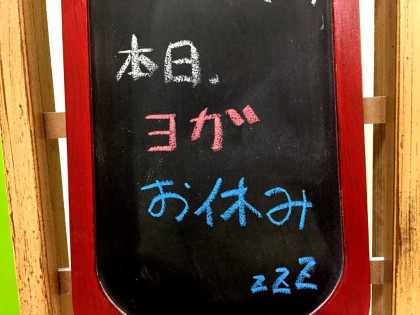 本日.
ヨガ
お休み
zzz